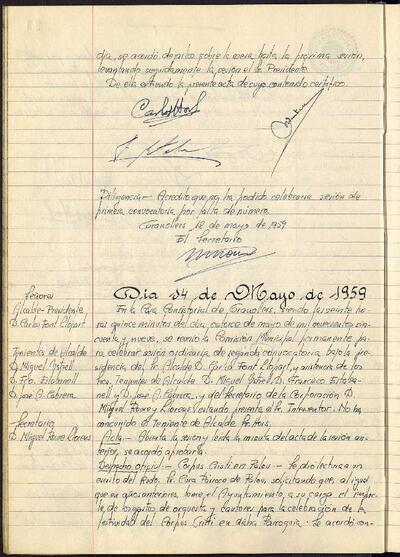 dia, se acordó dejarlo sobre la mesa hasta la próxima sesión,
levantando seguidamente la sesión el Sr. Presidente.
De ella extiendo la presente acta de cuyo contenido certifico.
Diligencia.- Acredito que no ha podido celebrarse sesión de
primera convocatoria por falta de número.
Granollers 12 de mayo de 1959
El Secretario
Día 14 de Mayo de 1959
Señores
Alcalde-Presidente
D. Carlos Font Llopart
Tenientes de Alcalde
D. Miguel
D. Fco. Estabanell
D. José A. Cabrera
Secretario
D. Miguel Llorens
En la Casa Consistorial de Granollers, siendo las veinte ho-
ras quince minutos del día catorce de mayo de mil novecientos cin-
cuenta y nueve, se reunió la Comisión Municipal permanente pa-
ra celebrar sesión ordinaria de segunda convocatoria bajo la pre-
sidencia del Sr. Alcalde D. Carlos Font Llopart, y asistencia de los
Iltres. Tenientes de Alcalde D. Miguel D. Francisco Estaba-
nell y D. José A. Cabrera, y del Secretario de la Corporación D.
Miguel y Llorens estando presente el Sr. Interventor. No ha
concurrido el Teniente de Alcalde Sr.
Acta.- Abierta la sesión y leída la minuta del acta de la sesión an-
terior, se acordó aprobarla.
Despacho oficial.- Corpus Cristi en Palou.- Se dió lectura a un
escrito del Rvdo. Sr. Cura Párroco de Palou, solicitando que, al igual
que en años anteriores, tome el Ayuntamiento a su cargo el impor-
te de los gastos de orquesta y cantores para la celebración de la
festividad del Corpus Cristi en dicha Parroquia. Se acordó con-